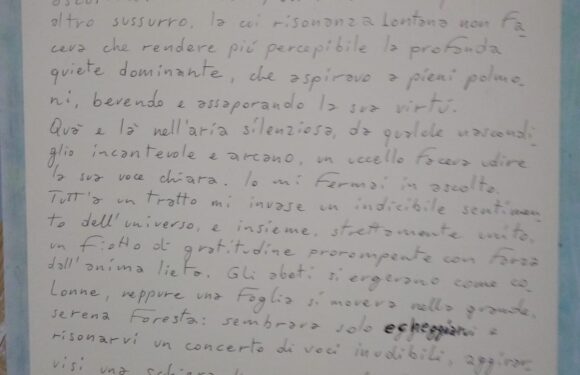 altro sussurro, la cui risonanza lontana non fa-
ceva che rendere più percepibile la profonda
quiete dominante, che aspiravo a pieni polmo-
ni, bevendo e assaporando la sua virtù.
Quà e là nell'aria silenziosa, da qualche nascondi-
glio incantevole e arcano, un uccello faceva udire
la sua voce chiara. Io mi fermai in ascolto.
Tutt'a un tratto mi invase un indicibile sentimen-
to dell'universo, e insieme, strettamente unito,
un fiotto di gratitudine prorompente con forza
dall'anima lieta. Gli abeti si ergevano come co-
lonne, neppure una foglia si moveva nella grande,
serena foresta: sembrava solo echeggiarvi e
risonarvi un concerto di voci inudibili, aggirar-
visi una schiera